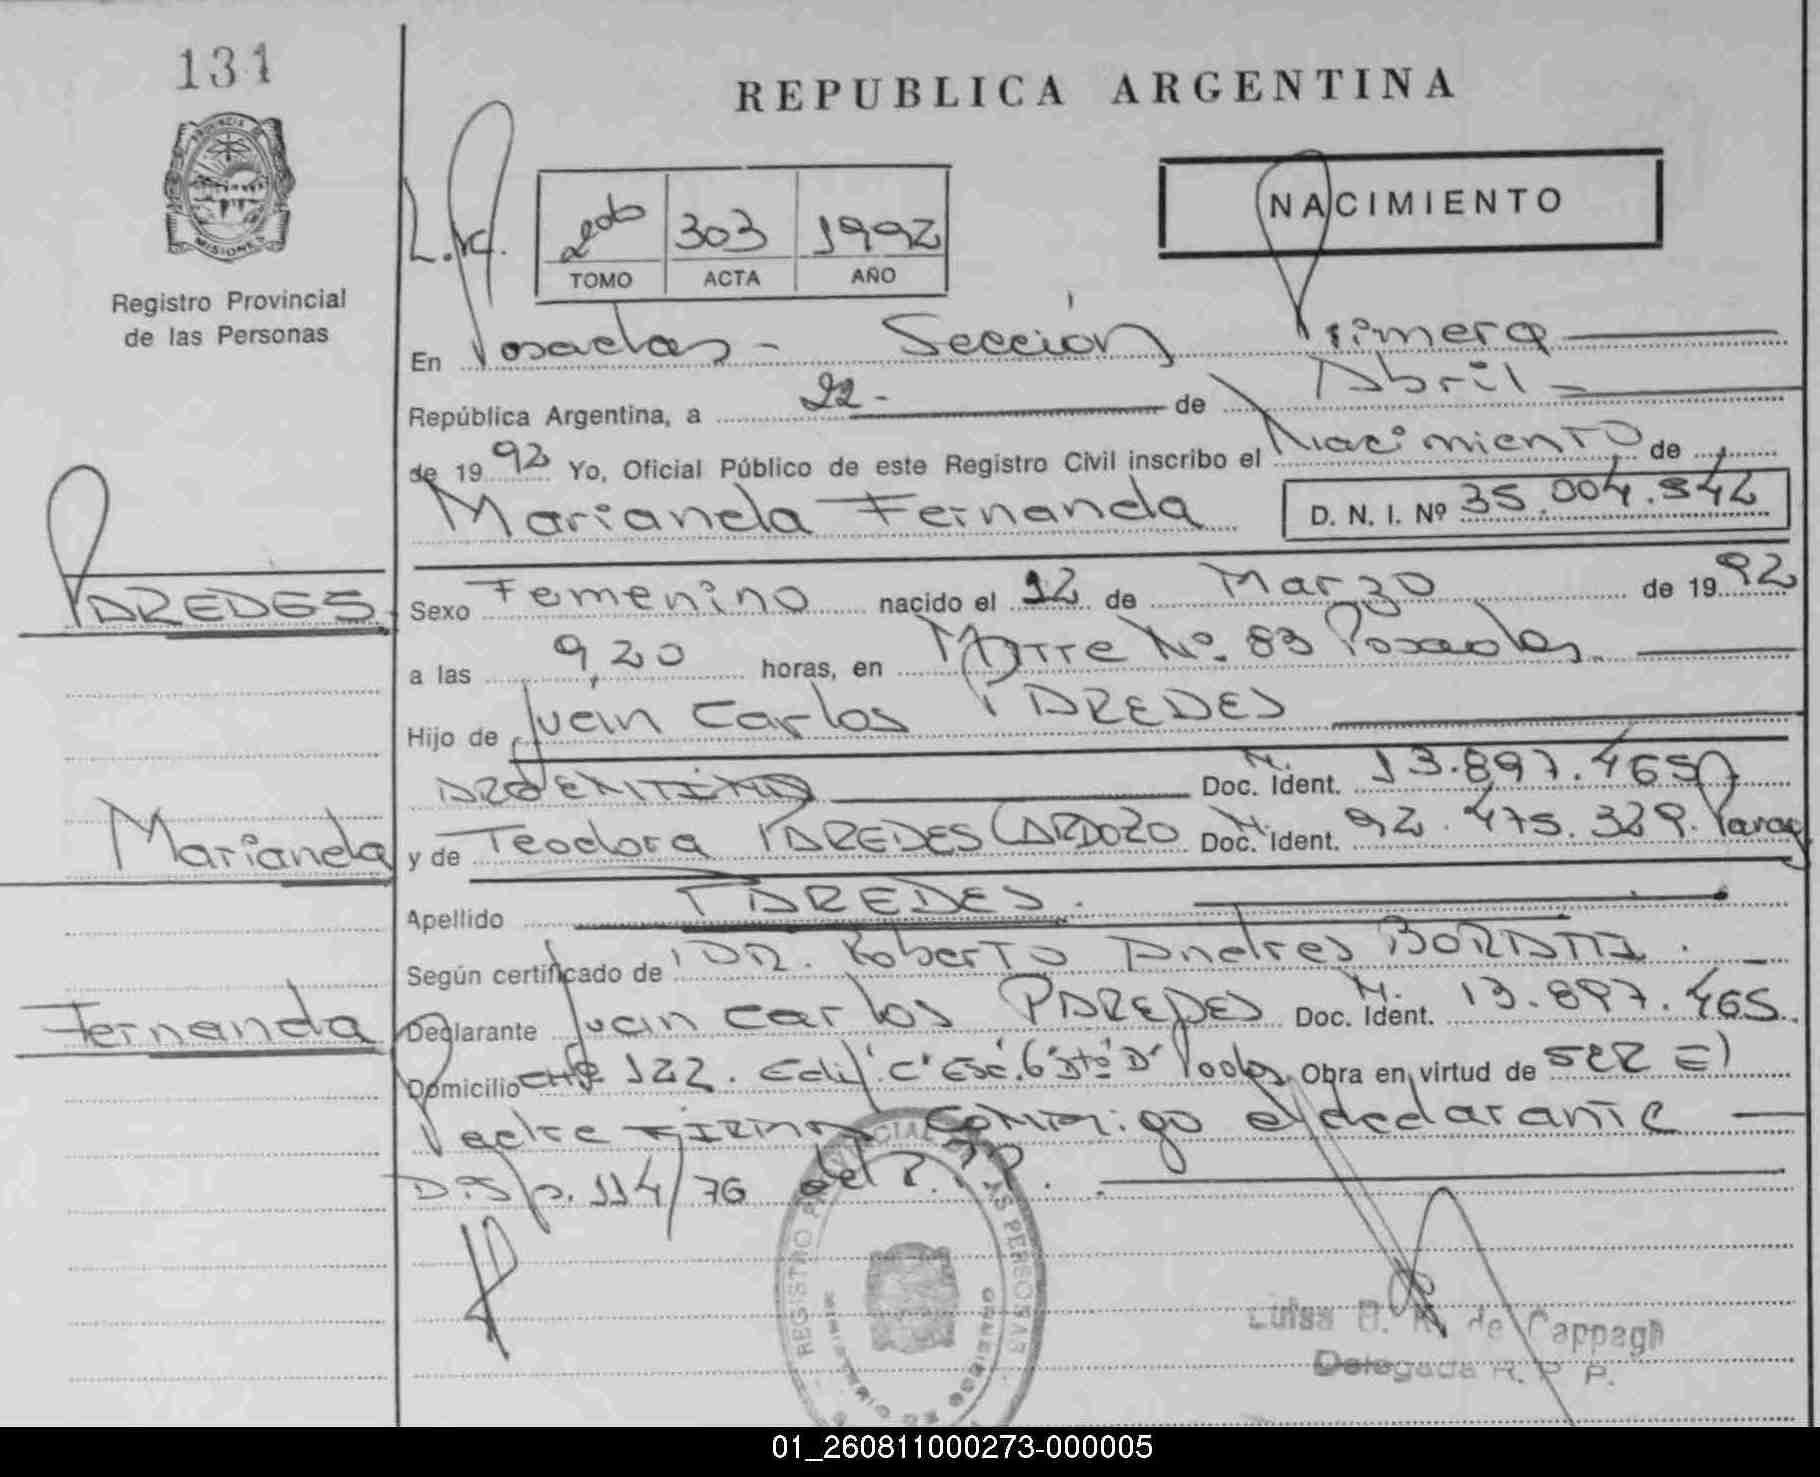 131
REPUBLICA ARGENTINA
PROVINCIA DE
MISIONES
Registro Provincial
de las Personas
2do 303 1992
TOMO ACTA AÑO
NACIMIENTO
En Posadas - Sección Primera
República Argentina, a 22 - de Abril -
de 1992 Yo, Oficial Público de este Registro Civil inscribo el Nacimiento de
Marianela Fernanda D. N. I. Nº 35.004.542
PAREDES
Sexo Femenino nacido el 12 de Marzo de 1992
a las 9,20 horas, en Mitre Nº. 83 Posadas.
Hijo de Juan Carlos PAREDES
ARGENTINO Doc. Ident. 13.897.465
Marianela
y de Teodora PAREDES CARDOZO Doc. Ident. 92.475.329. Parag
Apellido PAREDES.
Según certificado de DR. Roberto Andres
Fernanda
Declarante Juan Carlos PAREDES Doc. Ident. M. 13.897.465.
Domicilio CHP 122. Edif. "C" Esc. 6 Dto "D" Obra en virtud de SER El
Padre FIRMA conmigo el declarante
Disp. 114/76 del R.P.P.
REGISTRO PROVINCIAL DE LAS PERSONAS
Luisa de Cappagli
Delegada R. P. P.
01_260811000273-000005